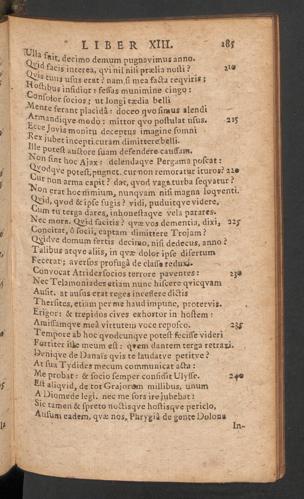 LIBER XIII. 285
Ulla fuit, decimo demum pugnavimus anno.
Quid facis interea, qvi nil nisi prælia nosti? 210
Qvis tuus usus erat? nam si mea facta reqviris;
Hostibus insidior: fossas munimine cingo:
Consolor socios; ut longi tædia belli
Mente ferant placida: doceo qvo simus alendi
Armandiqve modo: mittor qvo postulat usus. 215
Ecce Jovis monitu deceptus imagine somni
Rex jubet incepti curam dimittere belli.
Ille potest auctore suam defendere caussam.
Non sint hoc Ajax: delendaqve Pergama poscat:
Qvodqve potest, pugnet. cur non remoratur ituros? 220
Cur non arma capit? dat, qvod vaga turba seqvatur?
Non erat hoc nimium, nunqvam nisi magna loqventi.
Qvid, qvod & ipse fugis? vidi, puduitqve videre,
Cum tu terga dares, inhonestaqve vela parares.
Nec mora. Qvid facitis? qvæ vos dementia, dixi, 225
Concitat, ô socii, captam dimittere Trojam?
Qvidve domum fertis decimo, nisi dedecus, anno?
Talibus atqve aliis, in qvæ dolor ipse disertum
Fecerat; aversos profugâ de classe reduxi.
Convocat Atrides socios terrore paventes: 230
Nec Telamoniades etiam nunc hiscere qvicqvam
Audet. at ausus erat reges incessere dictis
Thersites, etiam per me haud impune, protervis.
Erigor: & trepidos cives exhortor in hostem:
Amissamqve meâ virtutem voce reposco. 235
Tempore ab hoc qvodcunqve potest fecisse videri
Fortiter iste meum est: qvem dantem terga retraxi.
Deniqve de Danais qvis te laudatve petitve?
At sua Tydides mecum communicat acta:
Me probat: & socio semper confisit Ulysse. 240
Est aliqvid, de tot Grajorum millibus, unum
A Diomede legi. nec me sors ire jubebat:
Sic tamen & spreto noctisqve hostisqve periclo,
Ausum eadem, qvæ nos, Phrygiâ de gente Dolona
In-